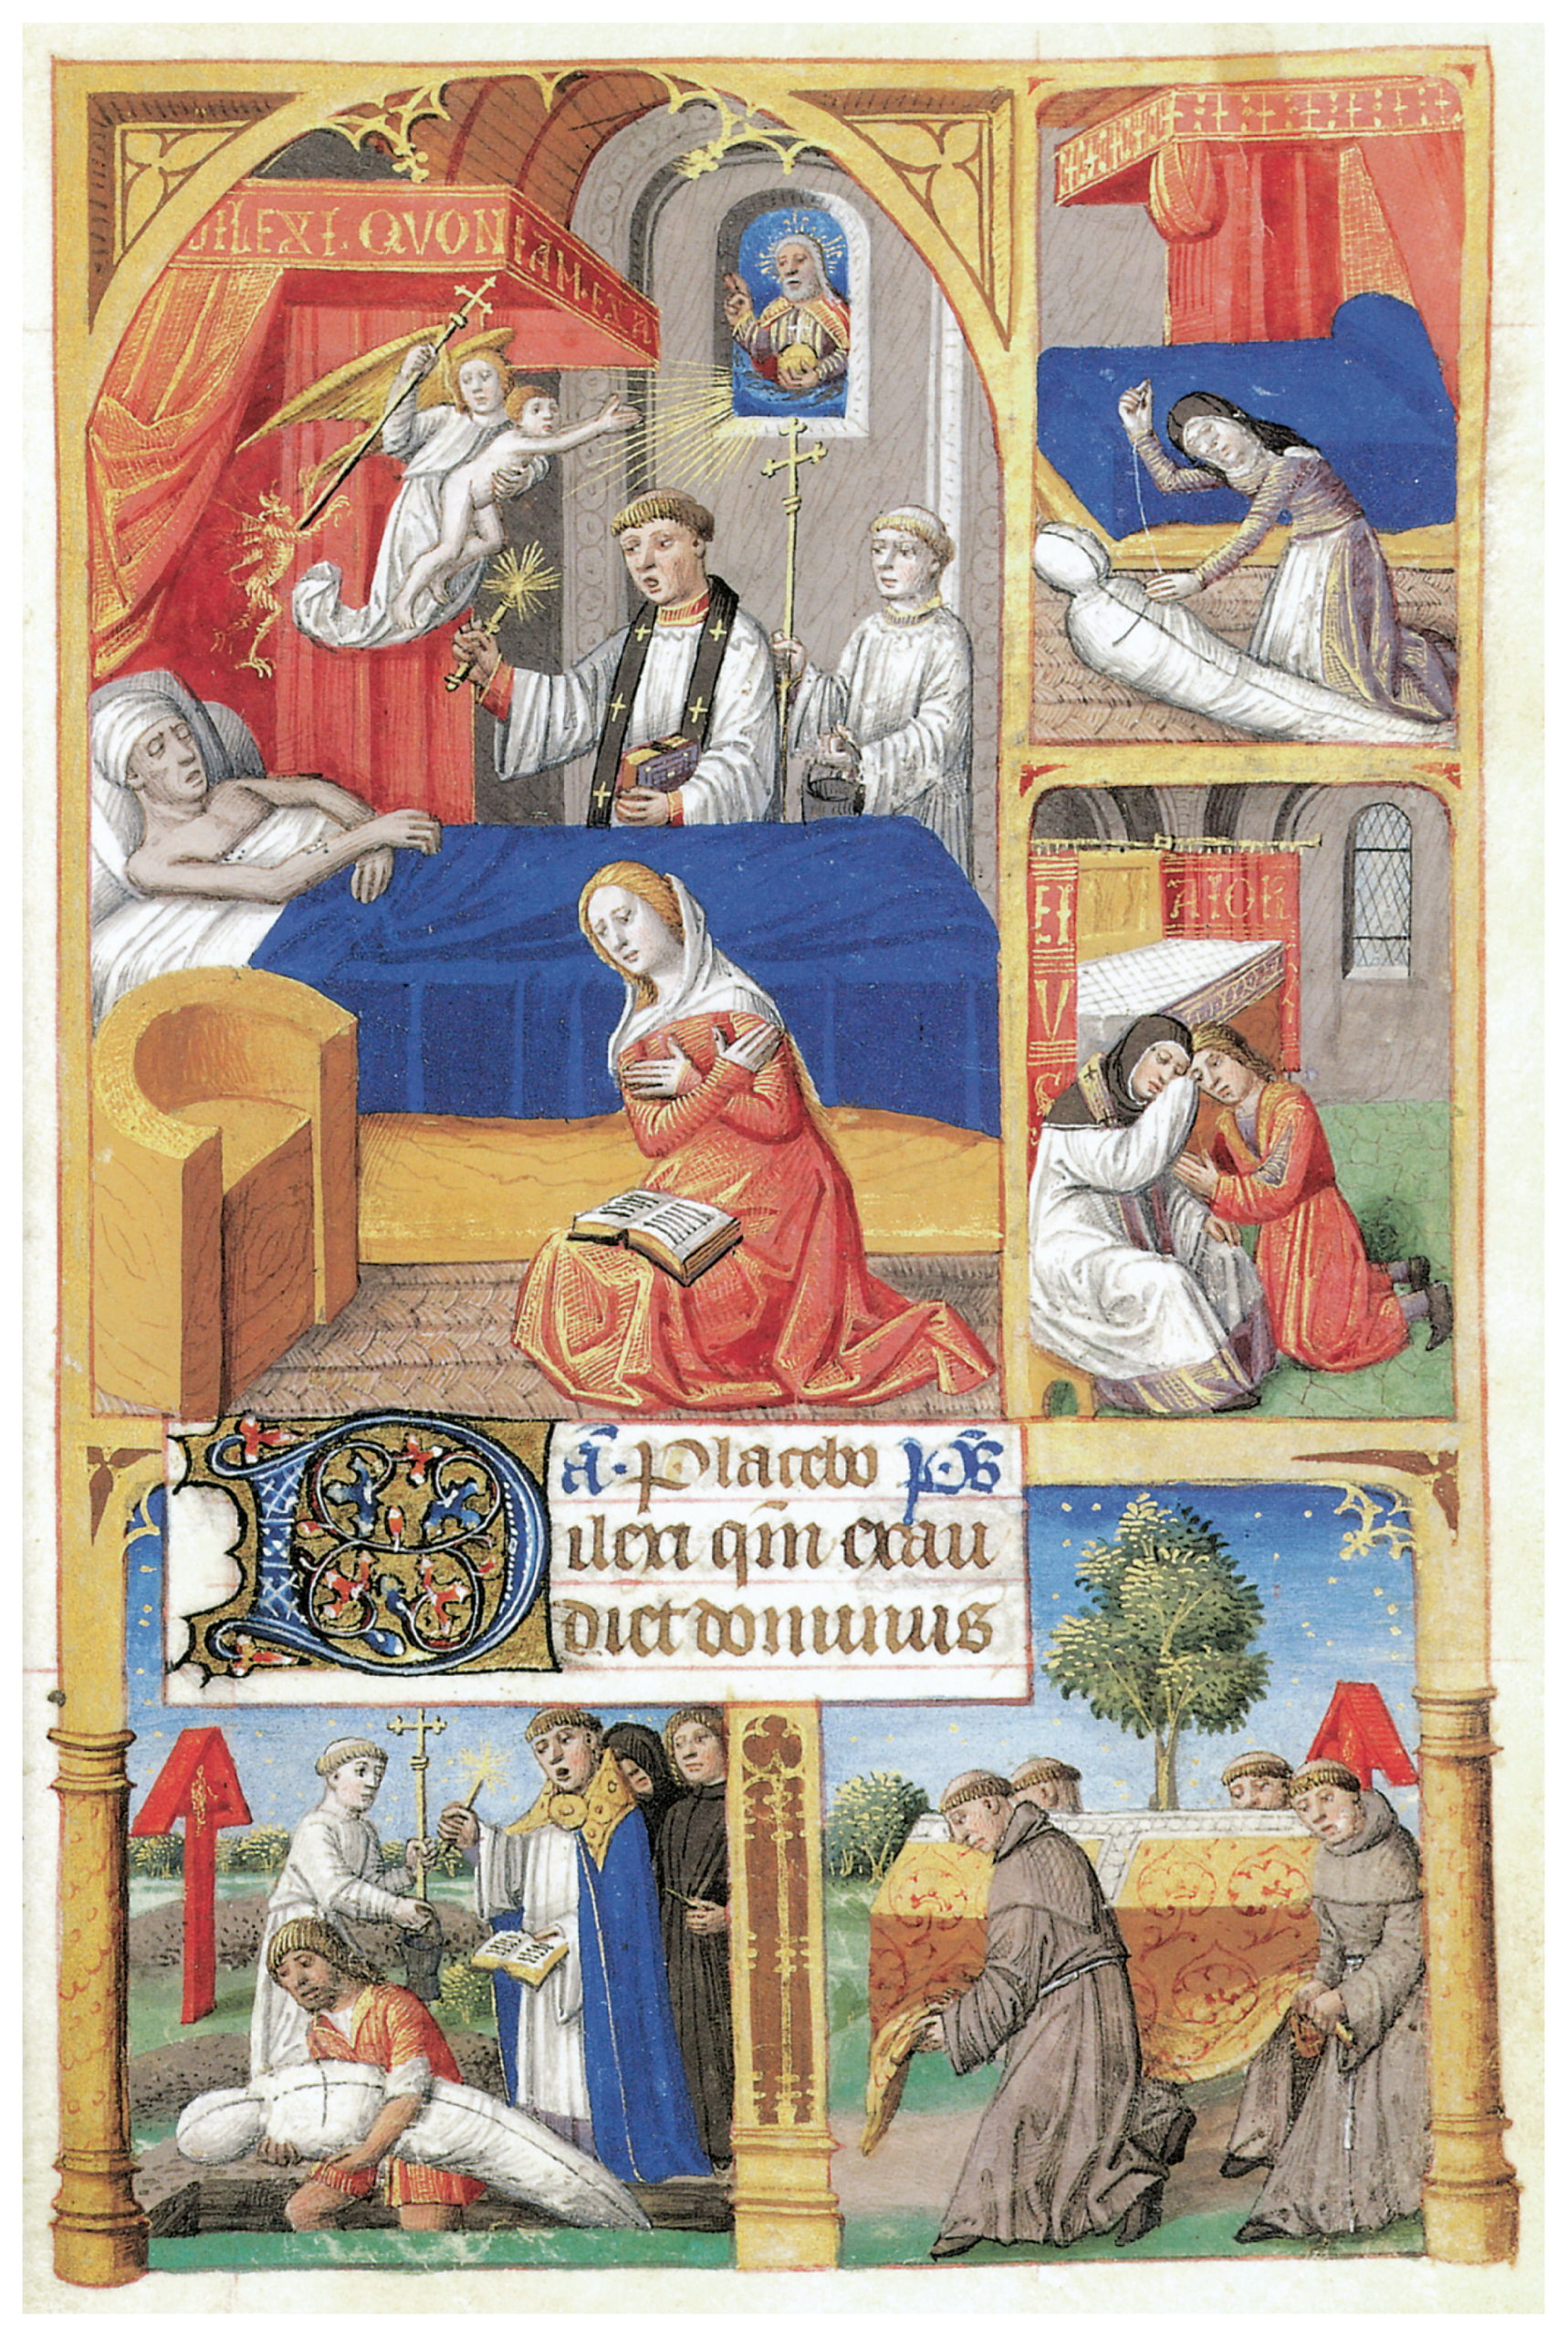 DILEXI QVON
IAM·EXA
ā · Placebo p̄s
Dilexi qm̄ exau
diet dominus